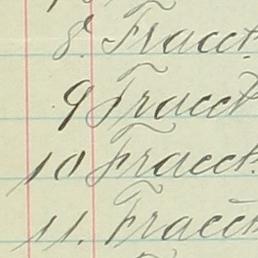 8. Fract.
9 Fract
10 Fract.
11. Fract